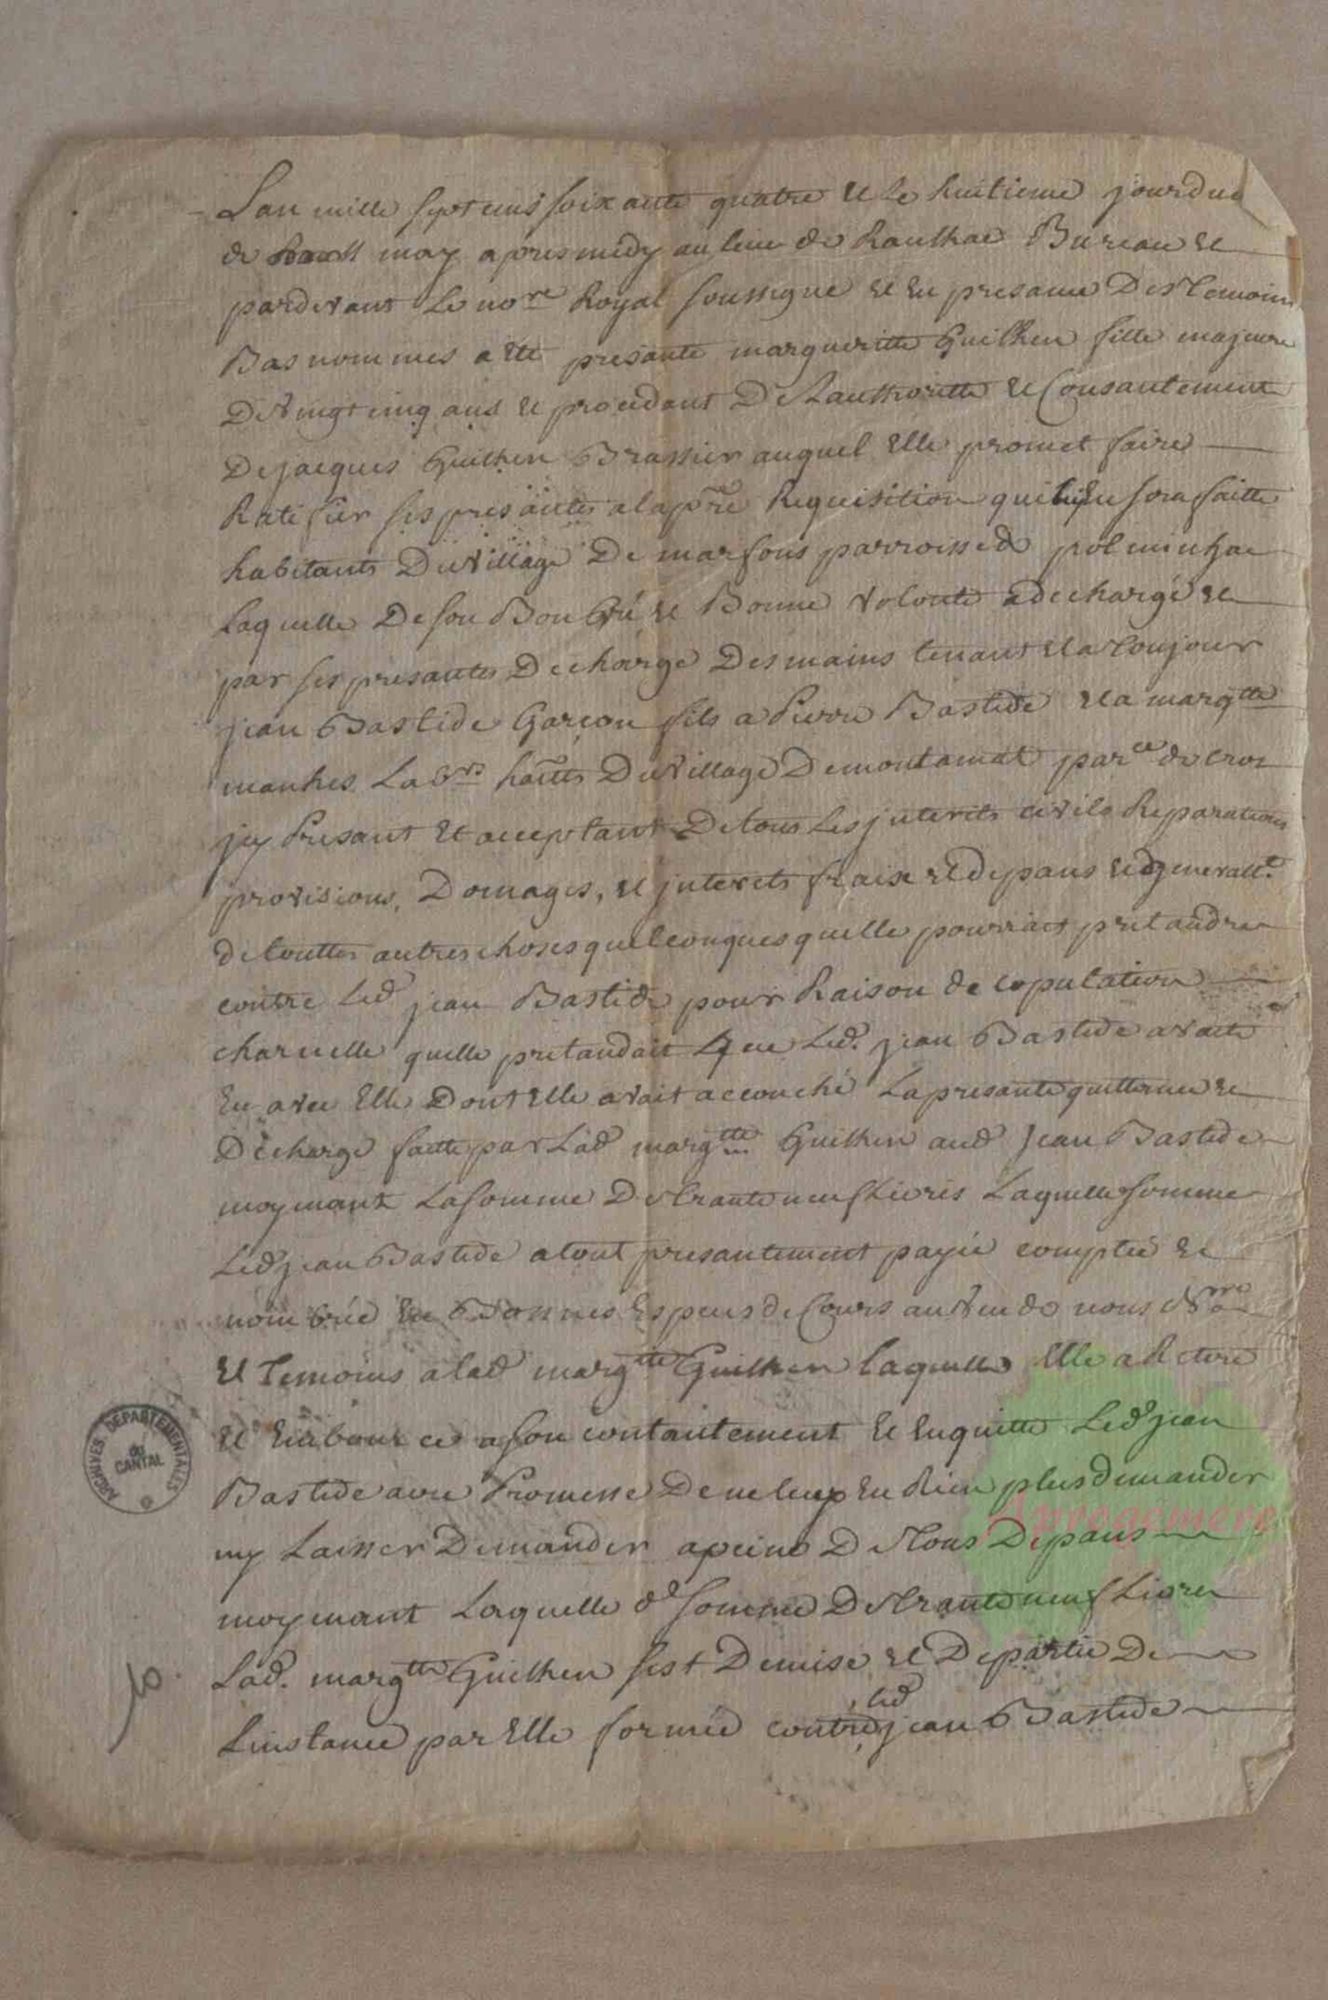 Lan mille sept cens soixante quatre et le huitieme jour du
de may apres midy au lieu de Raulhac Bureau et
pardevant le no.re Royal soussigné et en presance des temoins
Bas nommes a été presante margueritte Guilhen fille majeure
de vingt cinq ans et procedant de Lauthoritté et Consantement
de jacques Guilhen Brassier auquel Elle promet faire
Ratifier ses presantes a la pre Requisition qui luy En sera faitte
habitants du village de marfons parroisse de polminhac
Laquelle de son Bon Gré et Bonne volonté a dechargé et
par ses presantes decharge des mains tenant et a toujour
jean Bastide Garçon fils a Pierre Bastide et a margtte
manhes Labrs hatts du village de montamat parce de cros
jcy Presant et acceptant de tous les jnterets civils Reparations
provisions, domages, et jnterets fraix et depans et generallt
de touttes autres choses quelconques quelle pourrait pretandre
contre led jean Bastide pour Raison de copulation
charnelle quelle pretandait que led. jean Bastide avait
Eu avec Elle dont Elle avait accouché La presante quittance et
decharge faitte par Lad margtte Guilhen aud jean Bastide
moymant La somme de trante neuf Livres Laquelle somme
Led jean Bastide a tout presantement payée comptée et
nombrée En Bonnes Especes de Cours au veu de nous Nre
et Temoins a lad margtte Guilhen laquelle Elle a Retiré
et Embource a son contantement et En quitte Led jean
Bastide avec Promesse de ne luy En Rien plus demander
ny Laisser demander a peine de tous depans
moymant Laquelle de somme de trante neuf Livres
Lad. margtte Guilhen sest demise et departie de
Linstance par Elle formée contre led jean Bastide
ARCHIVES DEPARTEMENTALES
DU
CANTAL
Aprogemere